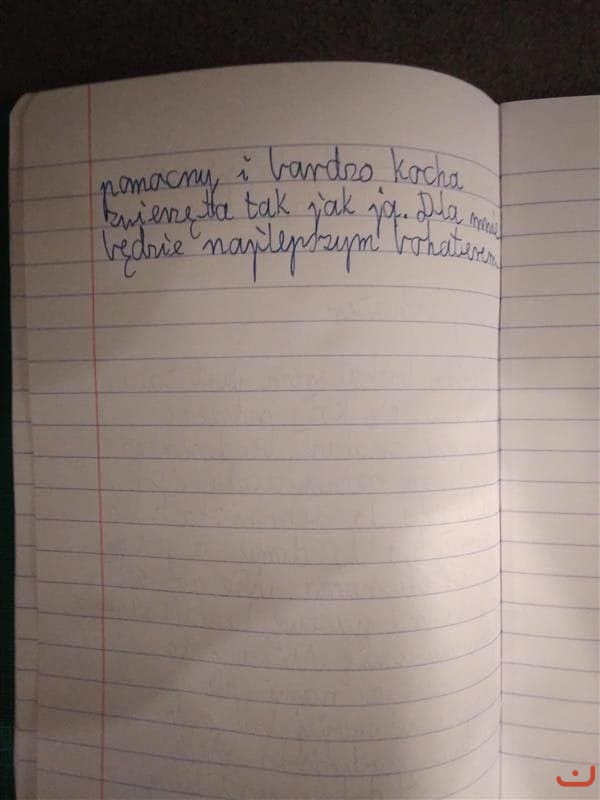 pomocny i bardzo kocha
zwierzęta tak jak ja. Dla mnie
będzie najlepszym bohaterem